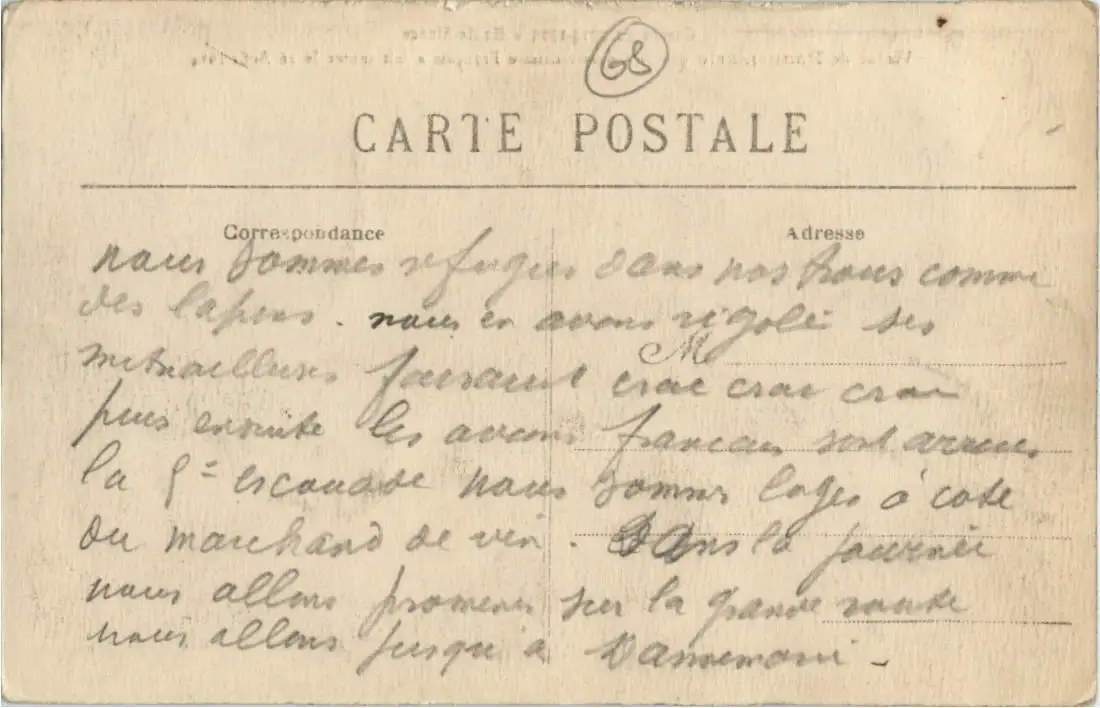 68
CARTE POSTALE
Correspondance
Adresse
nous sommes refugies dans nos trous comme
des lapens. nous en avons rigolé ses
M
mitrailleuses faisaient crac crac crac
puis ensuite les avions francais sont arrives
la 5e escouade nous sommes loges à cote
du marchand de vin. Dans la journée
nous allons promener sur la grande route
nous allons jusqu'a Dannemarie -